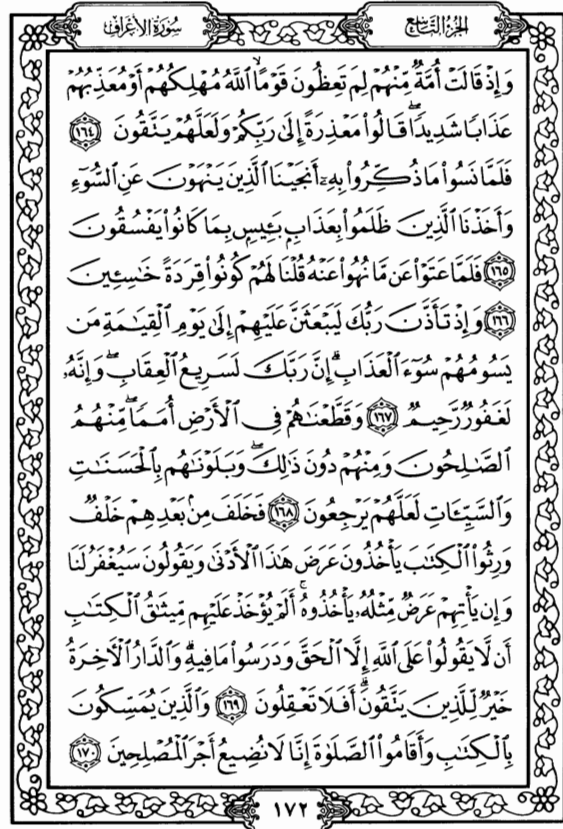 سُورَةُ الأَعْرَافِ
الجُزْءُ التَّاسِعُ
وَإِذْ قَالَتْ أُمَّةٌ مِّنْهُمْ لِمَ تَعِظُونَ قَوْمًا ۙ ٱللَّهُ مُهْلِكُهُمْ أَوْ مُعَذِّبُهُمْ
عَذَابًا شَدِيدًا ۖ قَالُوا۟ مَعْذِرَةً إِلَىٰ رَبِّكُمْ وَلَعَلَّهُمْ يَتَّقُونَ ١٦٤
فَلَمَّا نَسُوا۟ مَا ذُكِّرُوا۟ بِهِۦٓ أَنجَيْنَا ٱلَّذِينَ يَنْهَوْنَ عَنِ ٱلسُّوٓءِ
وَأَخَذْنَا ٱلَّذِينَ ظَلَمُوا۟ بِعَذَابٍۭ بَـِٔيسٍۭ بِمَا كَانُوا۟ يَفْسُقُونَ
١٦٥ فَلَمَّا عَتَوْا۟ عَن مَّا نُهُوا۟ عَنْهُ قُلْنَا لَهُمْ كُونُوا۟ قِرَدَةً خَـٰسِـِٔينَ
١٦٦ وَإِذْ تَأَذَّنَ رَبُّكَ لَيَبْعَثَنَّ عَلَيْهِمْ إِلَىٰ يَوْمِ ٱلْقِيَـٰمَةِ مَن
يَسُومُهُمْ سُوٓءَ ٱلْعَذَابِ ۗ إِنَّ رَبَّكَ لَسَرِيعُ ٱلْعِقَابِ ۖ وَإِنَّهُۥ
لَغَفُورٌ رَّحِيمٌ ١٦٧ وَقَطَّعْنَـٰهُمْ فِى ٱلْأَرْضِ أُمَمًا ۖ مِّنْهُمُ
ٱلصَّـٰلِحُونَ وَمِنْهُمْ دُونَ ذَٰلِكَ ۖ وَبَلَوْنَـٰهُم بِٱلْحَسَنَـٰتِ
وَٱلسَّيِّـَٔاتِ لَعَلَّهُمْ يَرْجِعُونَ ١٦٨ فَخَلَفَ مِنۢ بَعْدِهِمْ خَلْفٌ
وَرِثُوا۟ ٱلْكِتَـٰبَ يَأْخُذُونَ عَرَضَ هَـٰذَا ٱلْأَدْنَىٰ وَيَقُولُونَ سَيُغْفَرُ لَنَا
وَإِن يَأْتِهِمْ عَرَضٌ مِّثْلُهُۥ يَأْخُذُوهُ ۚ أَلَمْ يُؤْخَذْ عَلَيْهِم مِّيثَـٰقُ ٱلْكِتَـٰبِ
أَن لَّا يَقُولُوا۟ عَلَى ٱللَّهِ إِلَّا ٱلْحَقَّ وَدَرَسُوا۟ مَا فِيهِ ۗ وَٱلدَّارُ ٱلْـَٔاخِرَةُ
خَيْرٌ لِّلَّذِينَ يَتَّقُونَ ۗ أَفَلَا تَعْقِلُونَ ١٦٩ وَٱلَّذِينَ يُمَسِّكُونَ
بِٱلْكِتَـٰبِ وَأَقَامُوا۟ ٱلصَّلَوٰةَ إِنَّا لَا نُضِيعُ أَجْرَ ٱلْمُصْلِحِينَ ١٧٠
١٧٢